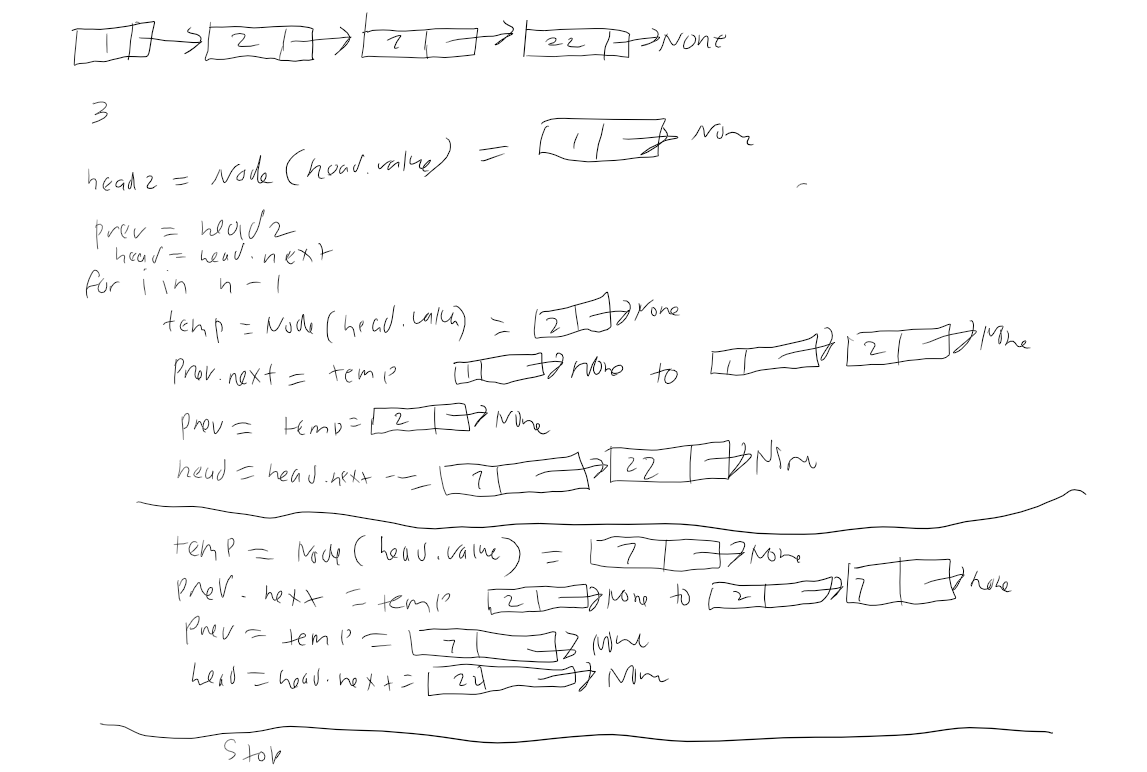 1 2 7 22 None
3
head2 = Node (head.value) = 1 None
prev = head2
head = head.next
for i in n - 1
temp = Node (head.value) = 2 None
Prev.next = temp 1 None to 1 2 None
prev = temp = 2 None
head = head.next = 7 22 None
temp = Node (head.value) = 7 None
prev.next = temp 2 None to 2 7 None
prev = temp = 7 None
head = head.next = 22 None
Stop